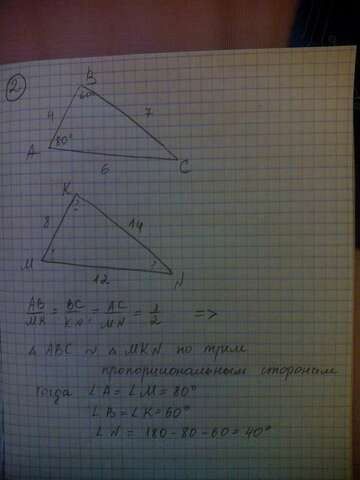 2.
B
60°
4
7
A
80°
6
C
K
?
8
14
M
?
12
N
AB/MK = BC/KN = AC/MN = 1/2 =>
△ ABC ~ △ MKN по трём
пропорциональным сторонам
тогда ∠A = ∠M = 80°
∠B = ∠K = 60°
∠N = 180 - 80 - 60 = 40°